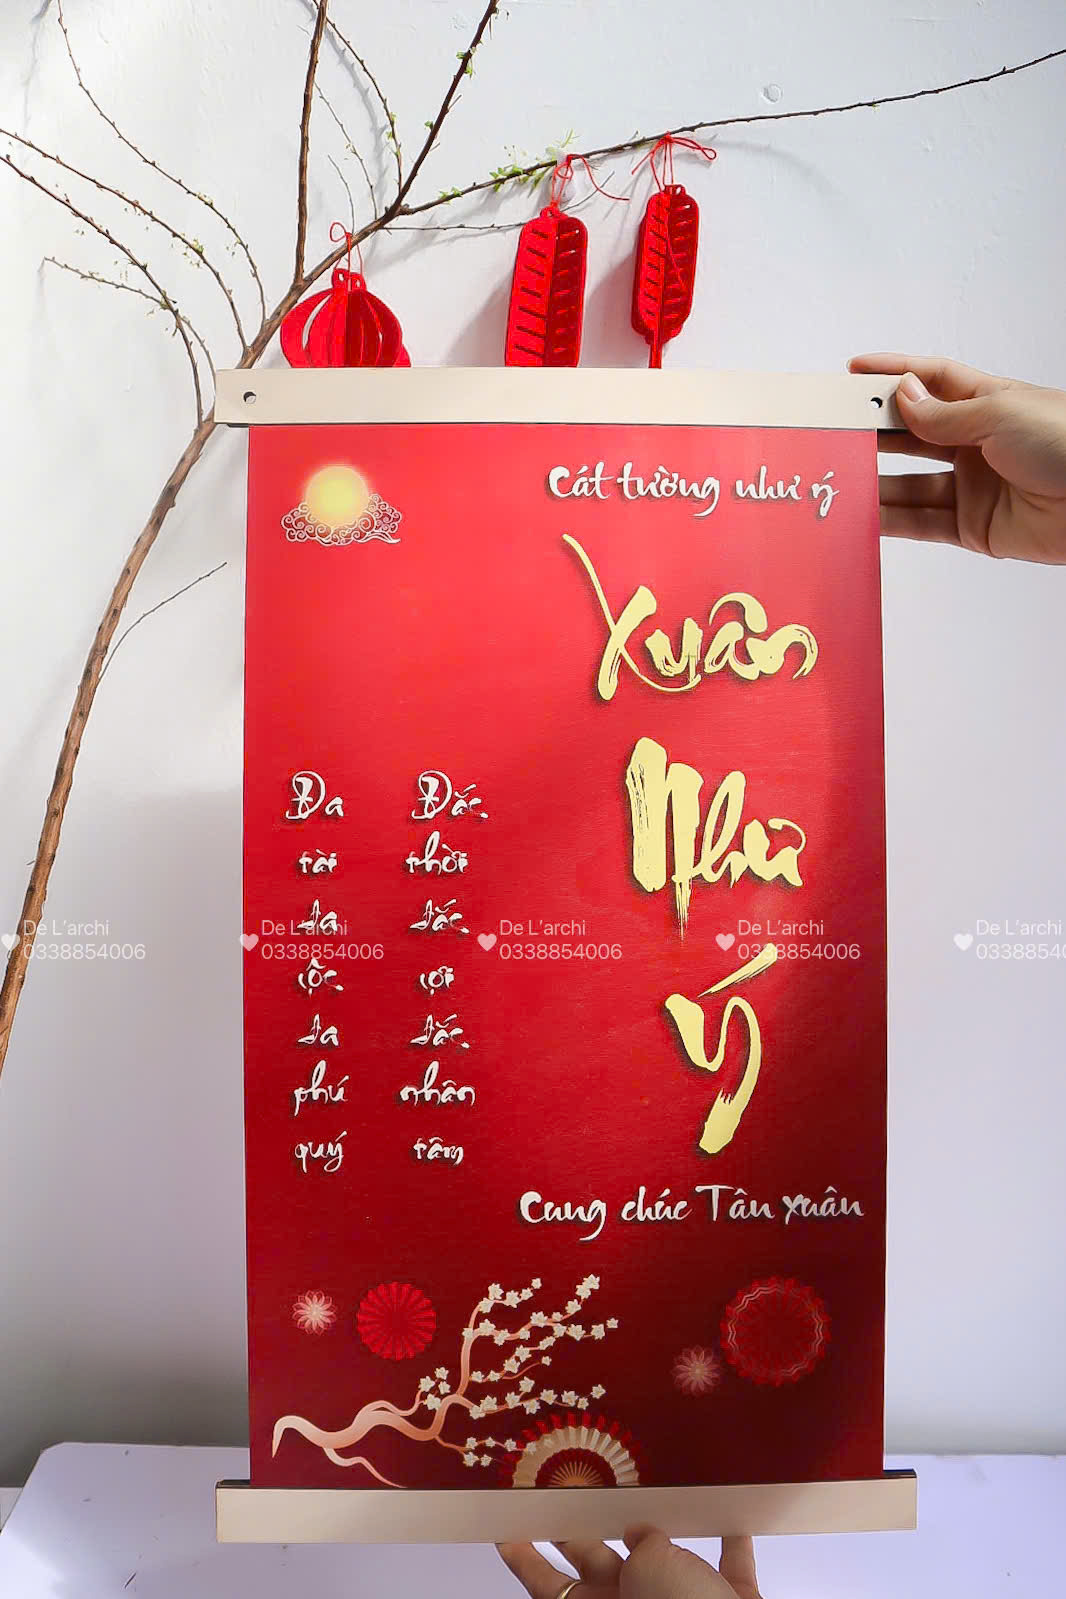 Cát tường như ý
Xuân
Như
Ý
Đa Đắc
tài thời
đa đắc
lộc lợi
đa đắc
phú nhân
quý tâm
Cung chúc Tân xuân
De L'archi De L'archi De L'archi De L'archi De L'archi
0338854006 0338854006 0338854006 0338854006 033885400